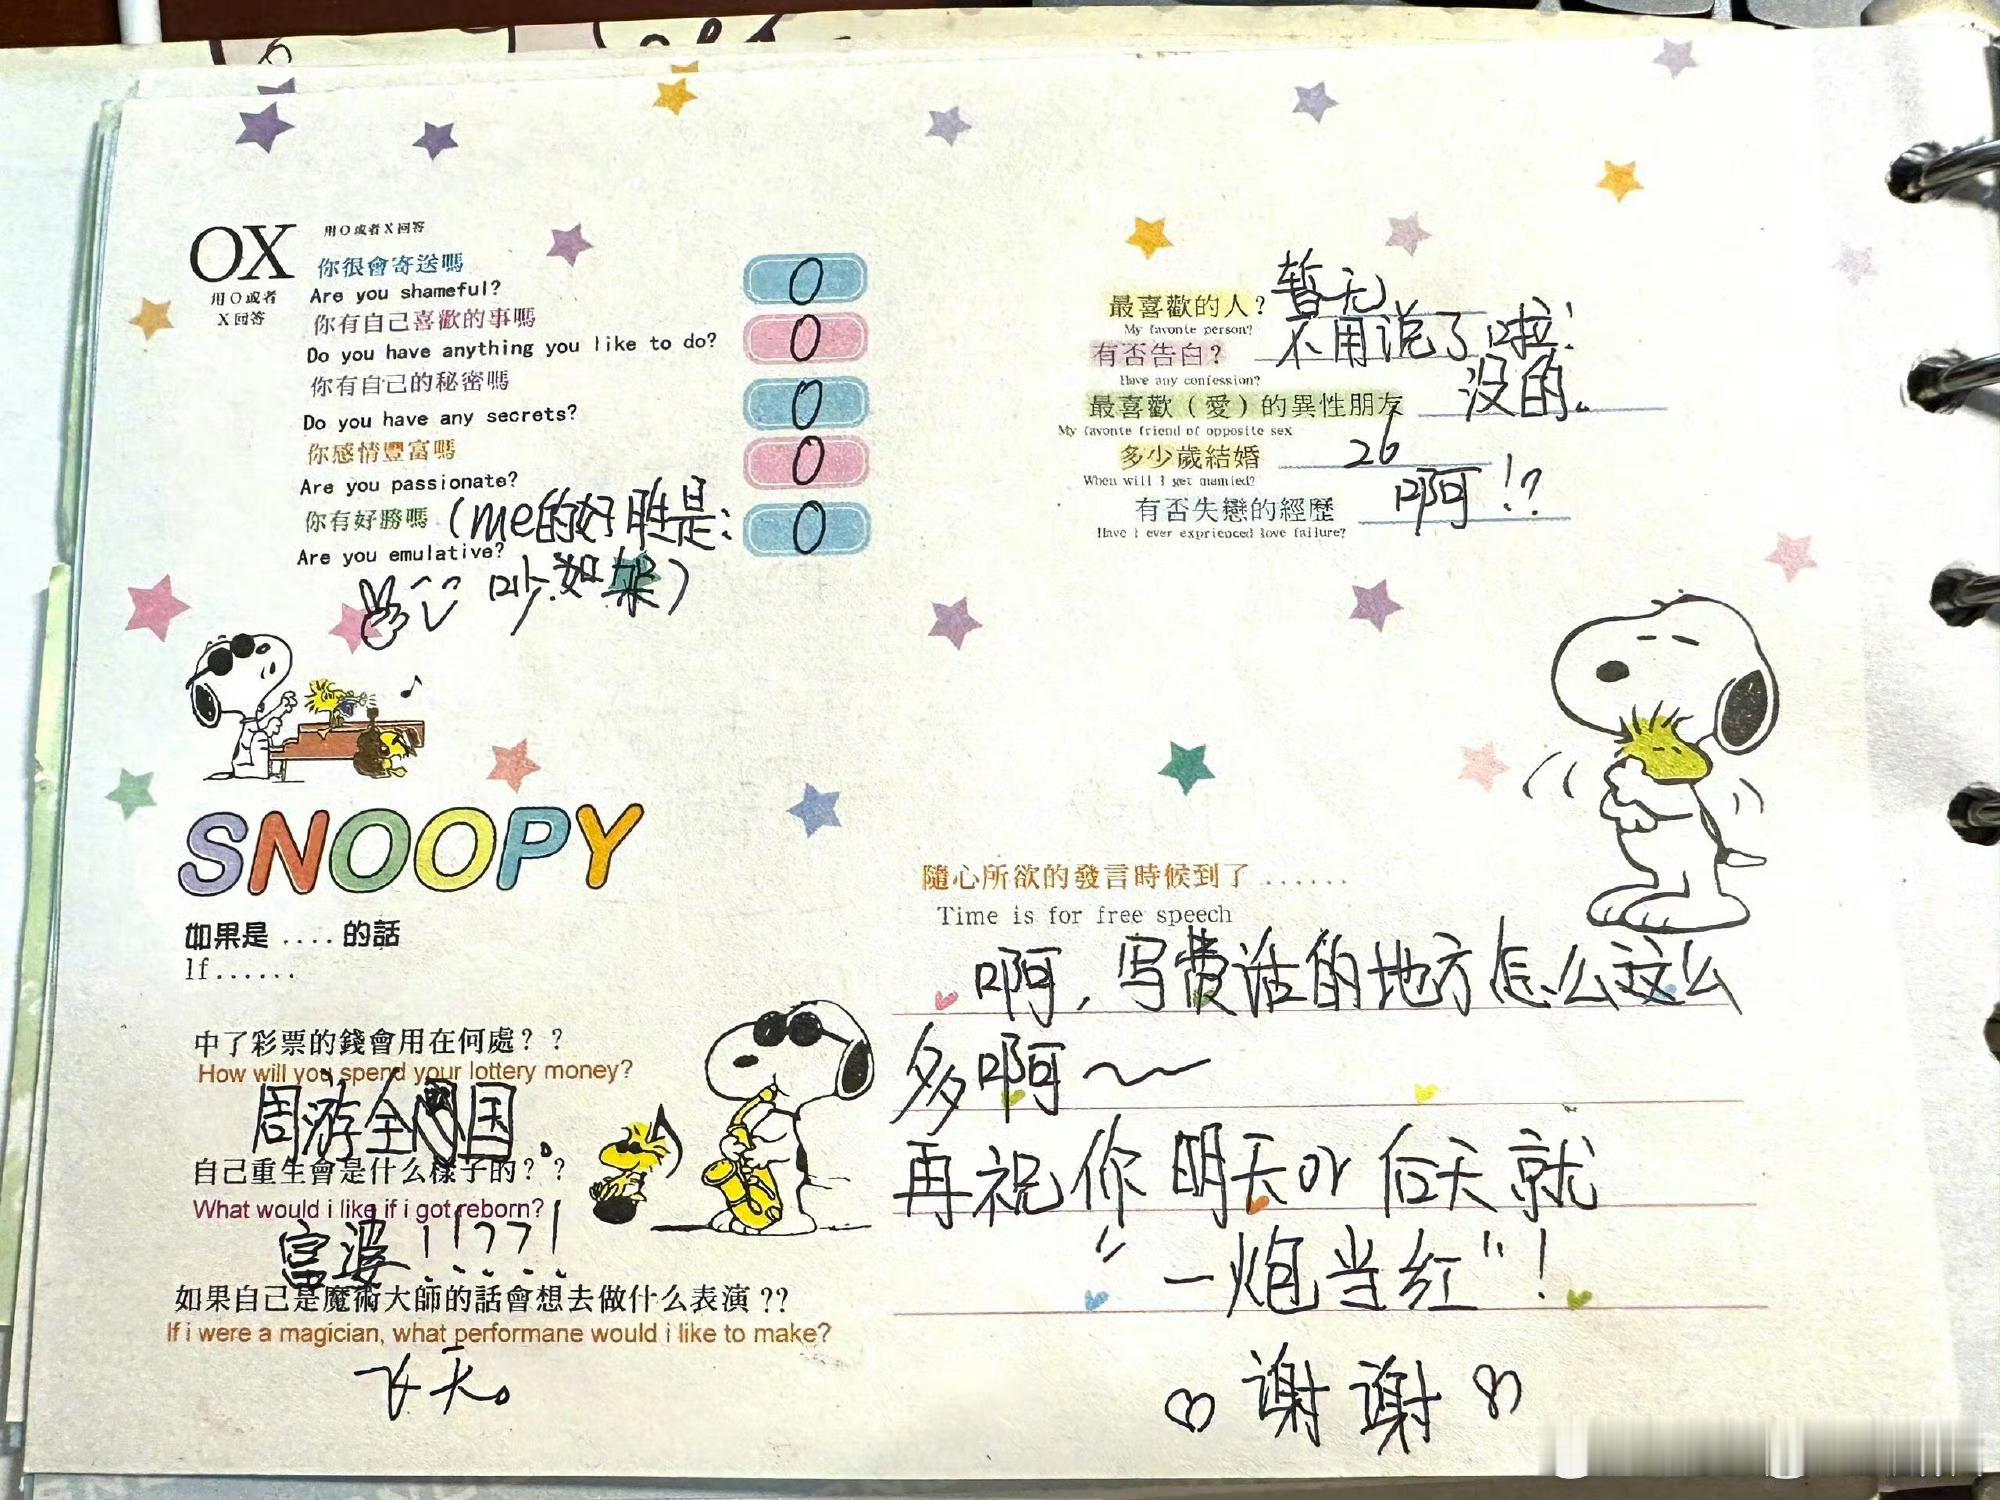 OX
用O或者X回答
用O或者
X回答
你很會寄送嗎
Are you shameful?
O
你有自己喜歡的事嗎
Do you have anything you like to do?
O
你有自己的秘密嗎
Do you have any secrets?
O
你感情豐富嗎
Are you passionate?
O
你有好勝嗎
(me的好胜是:
O
Are you emulative?
吵架)
最喜歡的人?
暂无
My favonte person?
有否告白?
不用说了啦:
Have any confession?
最喜歡(愛)的異性朋友
没的。
My favonte friend of opposite sex
多少歲結婚
26
When will I get mamied?
有否失戀的經歷
啊!?
Have i ever exprienced love failure?
SNOOPY
如果是 .... 的話
If......
中了彩票的錢會用在何處??
How will you spend your lottery money?
周游全国。
自己重生會是什么樣子的??
What would i like if i got reborn?
富婆!!??!
如果自己是魔術大師的話會想去做什么表演??
If i were a magician, what performane would i like to make?
飞天。
隨心所欲的發言時候到了......
Time is for free speech
啊,写费话的地方怎么这么
多啊～
再祝你明天or后天就
"一炮当红"!
谢谢